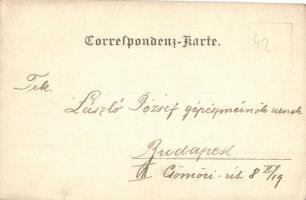 Correspondenz-Karte.
42
Tek.
László József gépészmérnök urnak
Budapest
Csömöri-út 8 II/19